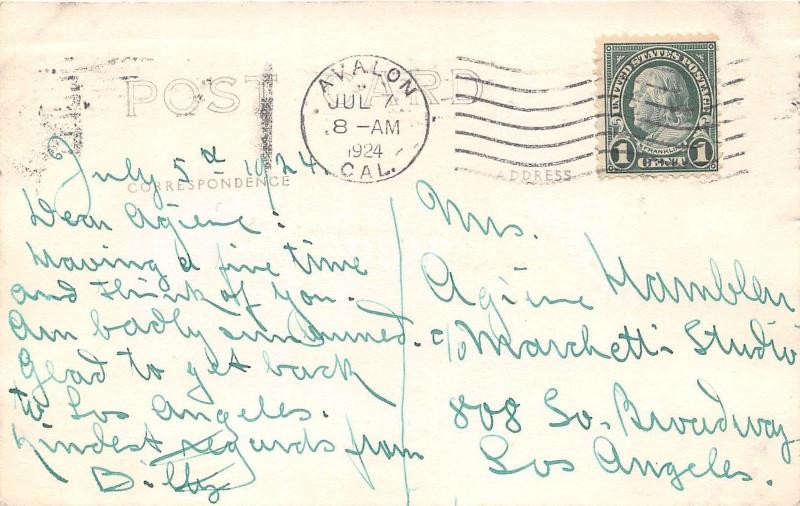 POST CARD
AVALON
JUL 7
8 - AM
1924
CAL.
UNITED STATES POSTAGE
FRANKLIN
1 CENT 1
CORRESPONDENCE
ADDRESS
July 5th 1924
Dear Agiene:
Having a fine time
and think of you.
Am badly sunburned.
Glad to get back
to Los Angeles.
Kindest regards from
Mrs.
Agiene Hamblen
c/o Marchetti Studio
808 So. Broadway
Los Angeles.